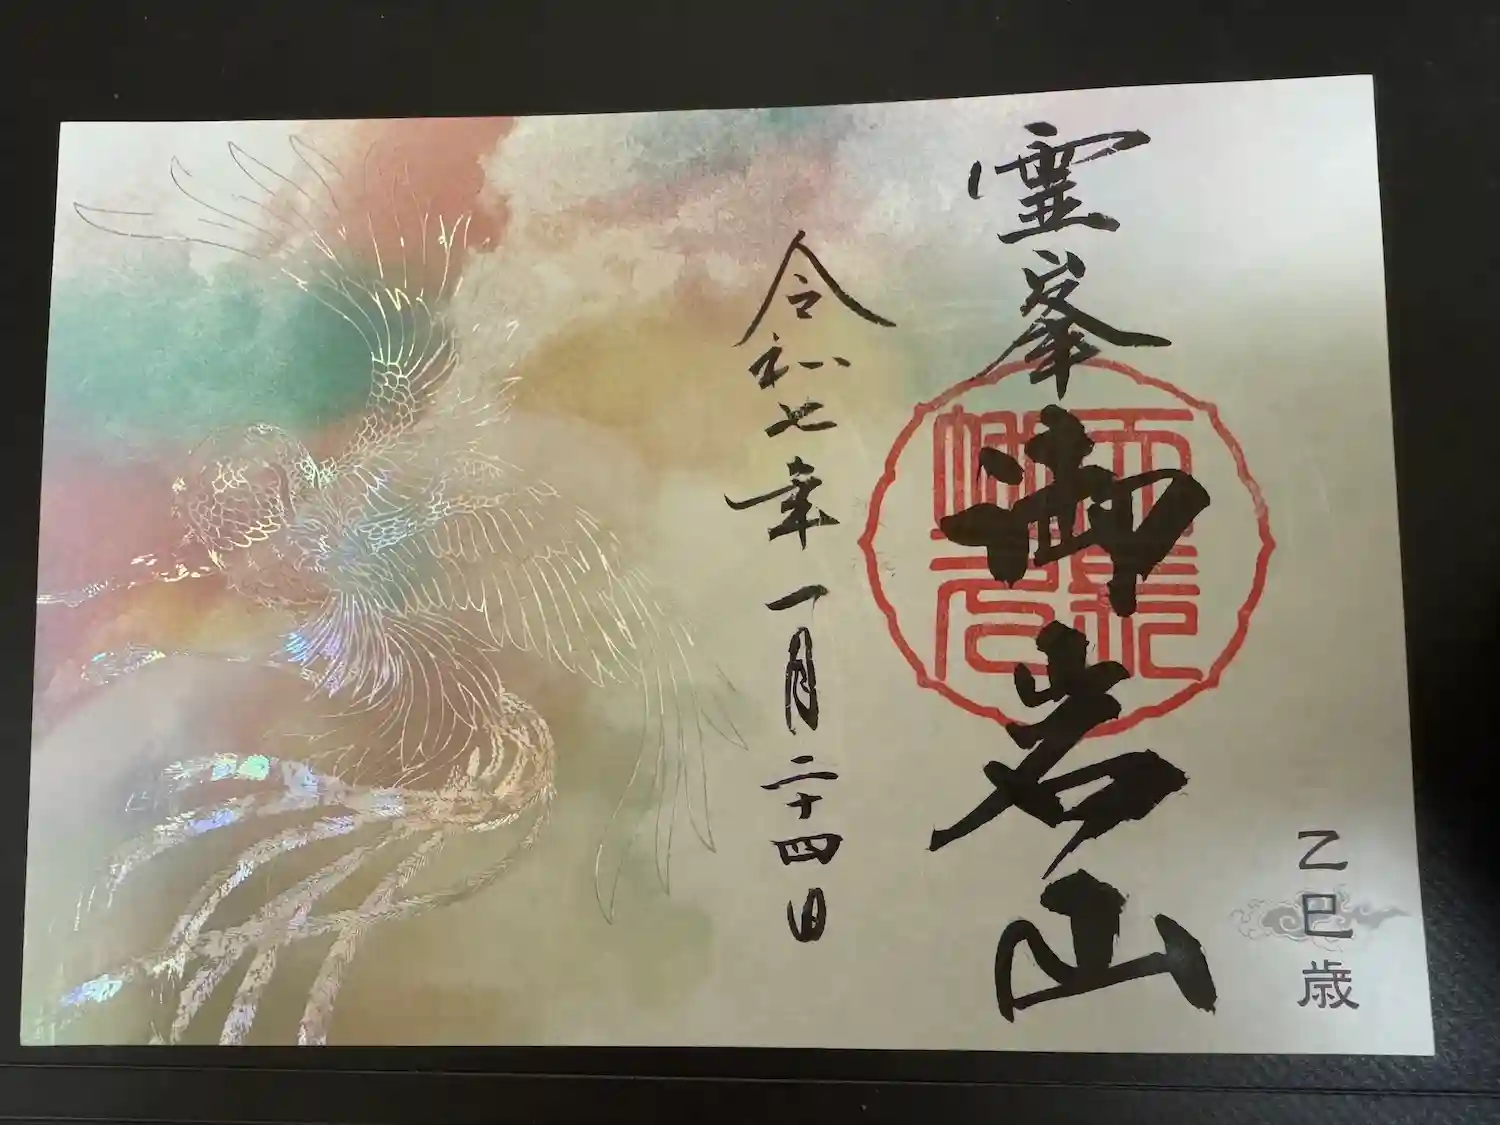 乙巳歳
霊峯
御岩山
令和七年一月二十四日